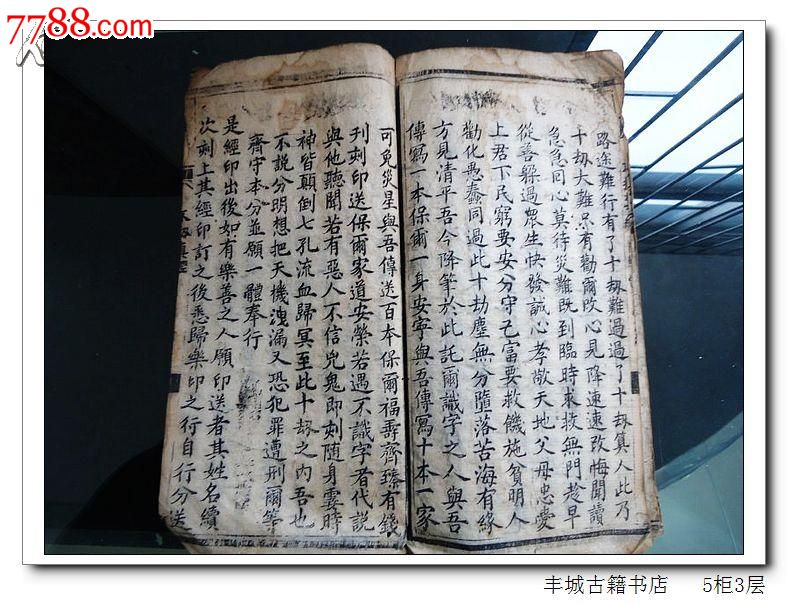 7788.com
路途難行有了十劫難過過了十劫真人此乃
十劫大難只有勸爾改心見降速速改悔聞讀
急急回心莫待災難既到臨時求救無門趁早
從善躲過眾生快發誠心孝敬天地父母忠愛
上君下民窮要安分守己富要救饑施貧明人
勸化愚蠢同過此十劫塵無分墮落苦海有緣
方見清平吾今降筆於此託爾識字之人與吾
傳寫一本保爾一身安寧與吾傳寫十本一家
可免災星與吾傳送百本保爾福壽齊臻有錢
刊刻印送保爾家道安榮若遇不識字者代說
與他聽聞若有惡人不信兇鬼即刻隨身霎時
神皆顛倒七孔流血歸冥至此十劫之內吾也
不說分明想把天機洩漏又恐犯罪遭刑爾等
齊守本分並願一體奉行
是經印出後如有樂善之人願印送者其姓名續
次刻上其經印訂之後悉歸樂印之行自行分送
丰城古籍书店 5柜3层